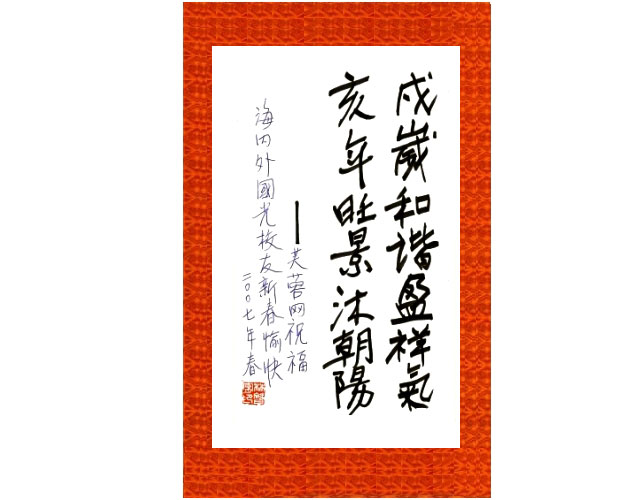 戍歲和谐盈祥氣
亥年旺景沐朝陽
—芙蓉网祝福
海内外國光校友新春愉快
二00七年春